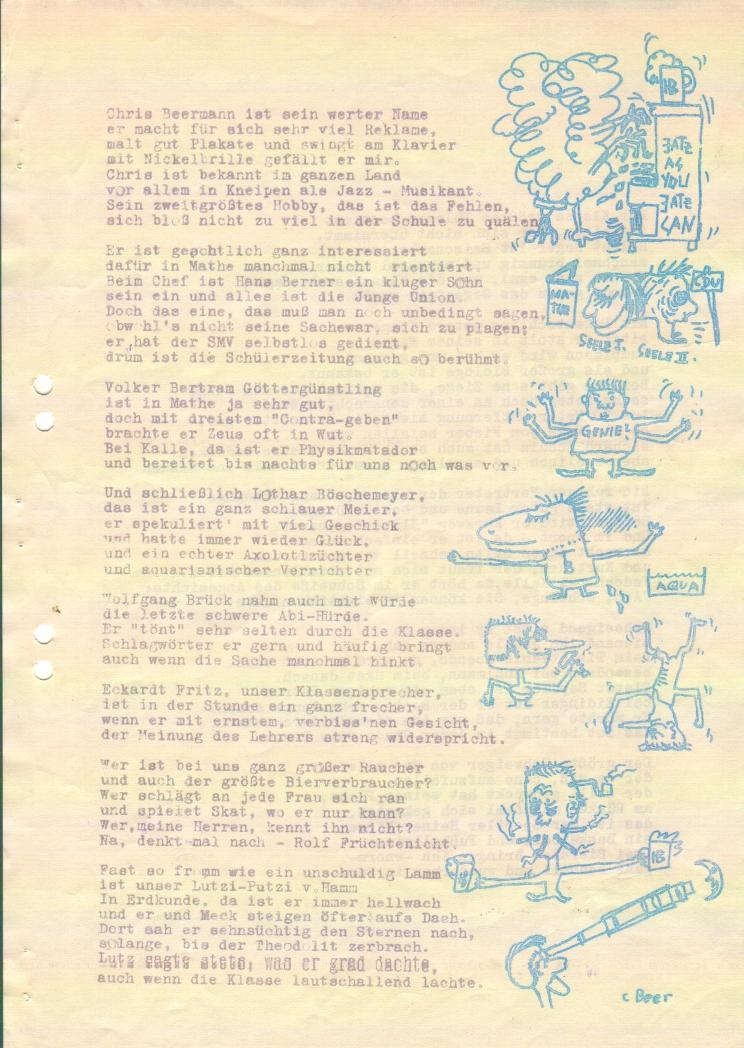 Chris Beermann ist sein werter Name
er macht für sich sehr viel Reklame,
malt gut Plakate und swingt am Klavier
mit Nickelbrille gefällt er mir.
Chris ist bekannt im ganzen Land
vor allem in Kneipen als Jazz - Musikant.
Sein zweitgrößtes Hobby, das ist das Fehlen,
sich bloß nicht zu viel in der Schule zu quälen
Er ist geschtlich ganz interessiert
dafür in Mathe manchmal nicht rientiert.
Beim Chef ist Hans Berner ein kluger Sohn
sein ein und alles ist die Junge Union.
Doch das eine, das muß man noch unbedingt sagen,
obwohl's nicht seine Sachewar, sich zu plagen;
er hat der SMV selbstlos gedient,
drum ist die Schülerzeitung auch so berühmt.
Volker Bertram Göttergünstling
ist in Mathe ja sehr gut,
doch mit dreistem "Contra-geben"
brachte er Zeus oft in Wut.
Bei Kalle, da ist er Physikmatador
und bereitet bis nachts für uns noch was vor.
Und schließlich Lothar Böschemeyer,
das ist ein ganz schlauer Meier,
er spekuliert' mit viel Geschick
und hatte immer wieder Glück,
und ein echter Axolotlzüchter
und aquarianischer Verrichter
Wolfgang Brück nahm auch mit Würde
die letzte schwere Abi-Hürde.
Er "tönt" sehr selten durch die Klasse.
Schlagwörter er gern und häufig bringt
auch wenn die Sache manchmal hinkt.
Eckardt Fritz, unser Klassensprecher,
ist in der Stunde ein ganz frecher,
wenn er mit ernstem, verbiss'nen Gesicht,
der Meinung des Lehrers streng widerspricht.
Wer ist bei uns ganz großer Raucher
und auch der größte Bierverbraucher?
Wer schlägt an jede Frau sich ran
und spielet Skat, wo er nur kann?
Wer,meine Herren, kennt ihn nicht?
Na, denkt mal nach - Rolf Früchtenicht.
Fast so fromm wie ein unschuldig Lamm
ist unser Lutzi-Putzi v.Hamm
In Erdkunde, da ist er immer hellwach
und er und Meck steigen öfter aufs Dach.
Dort sah er sehnsüchtig den Sternen nach,
solange, bis der Theodolit zerbrach.
Lutz sagte stets, was er grad dachte,
auch wenn die Klasse lautschallend lachte.
IB
JATZ
AS
YOU
JATZ
CAN
MA-
THE
CDU
SEELE I.
SEELE II.
GENIE!
B
AQUA
IB
IB
c Beer